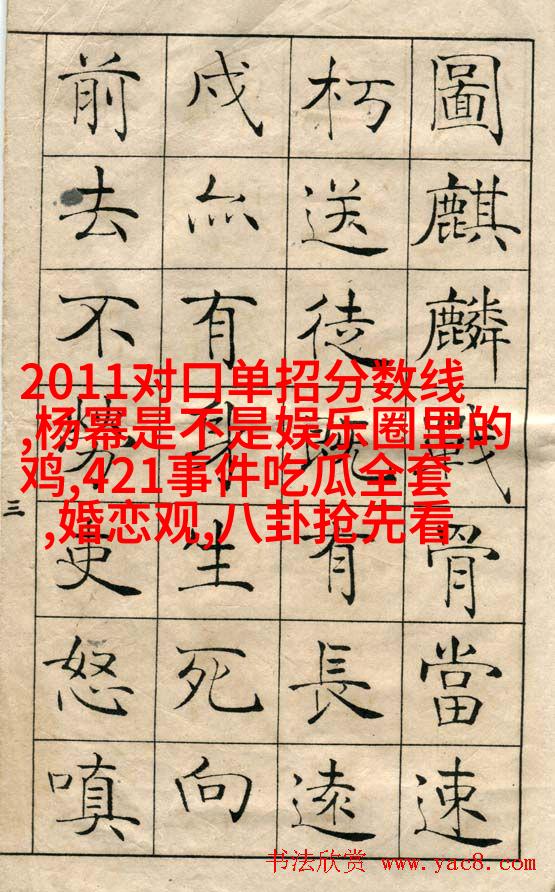 圖麒麟戰骨當速
朽送徒既有長遠
戍亦有身生死向
前去不勞吏怒嗔
三
2011对口单招分数线
,杨幂是不是娱乐圈里的
鸡,421事件吃瓜全套
,婚恋观,八卦抢先看
书法欣赏 www.yac8.com